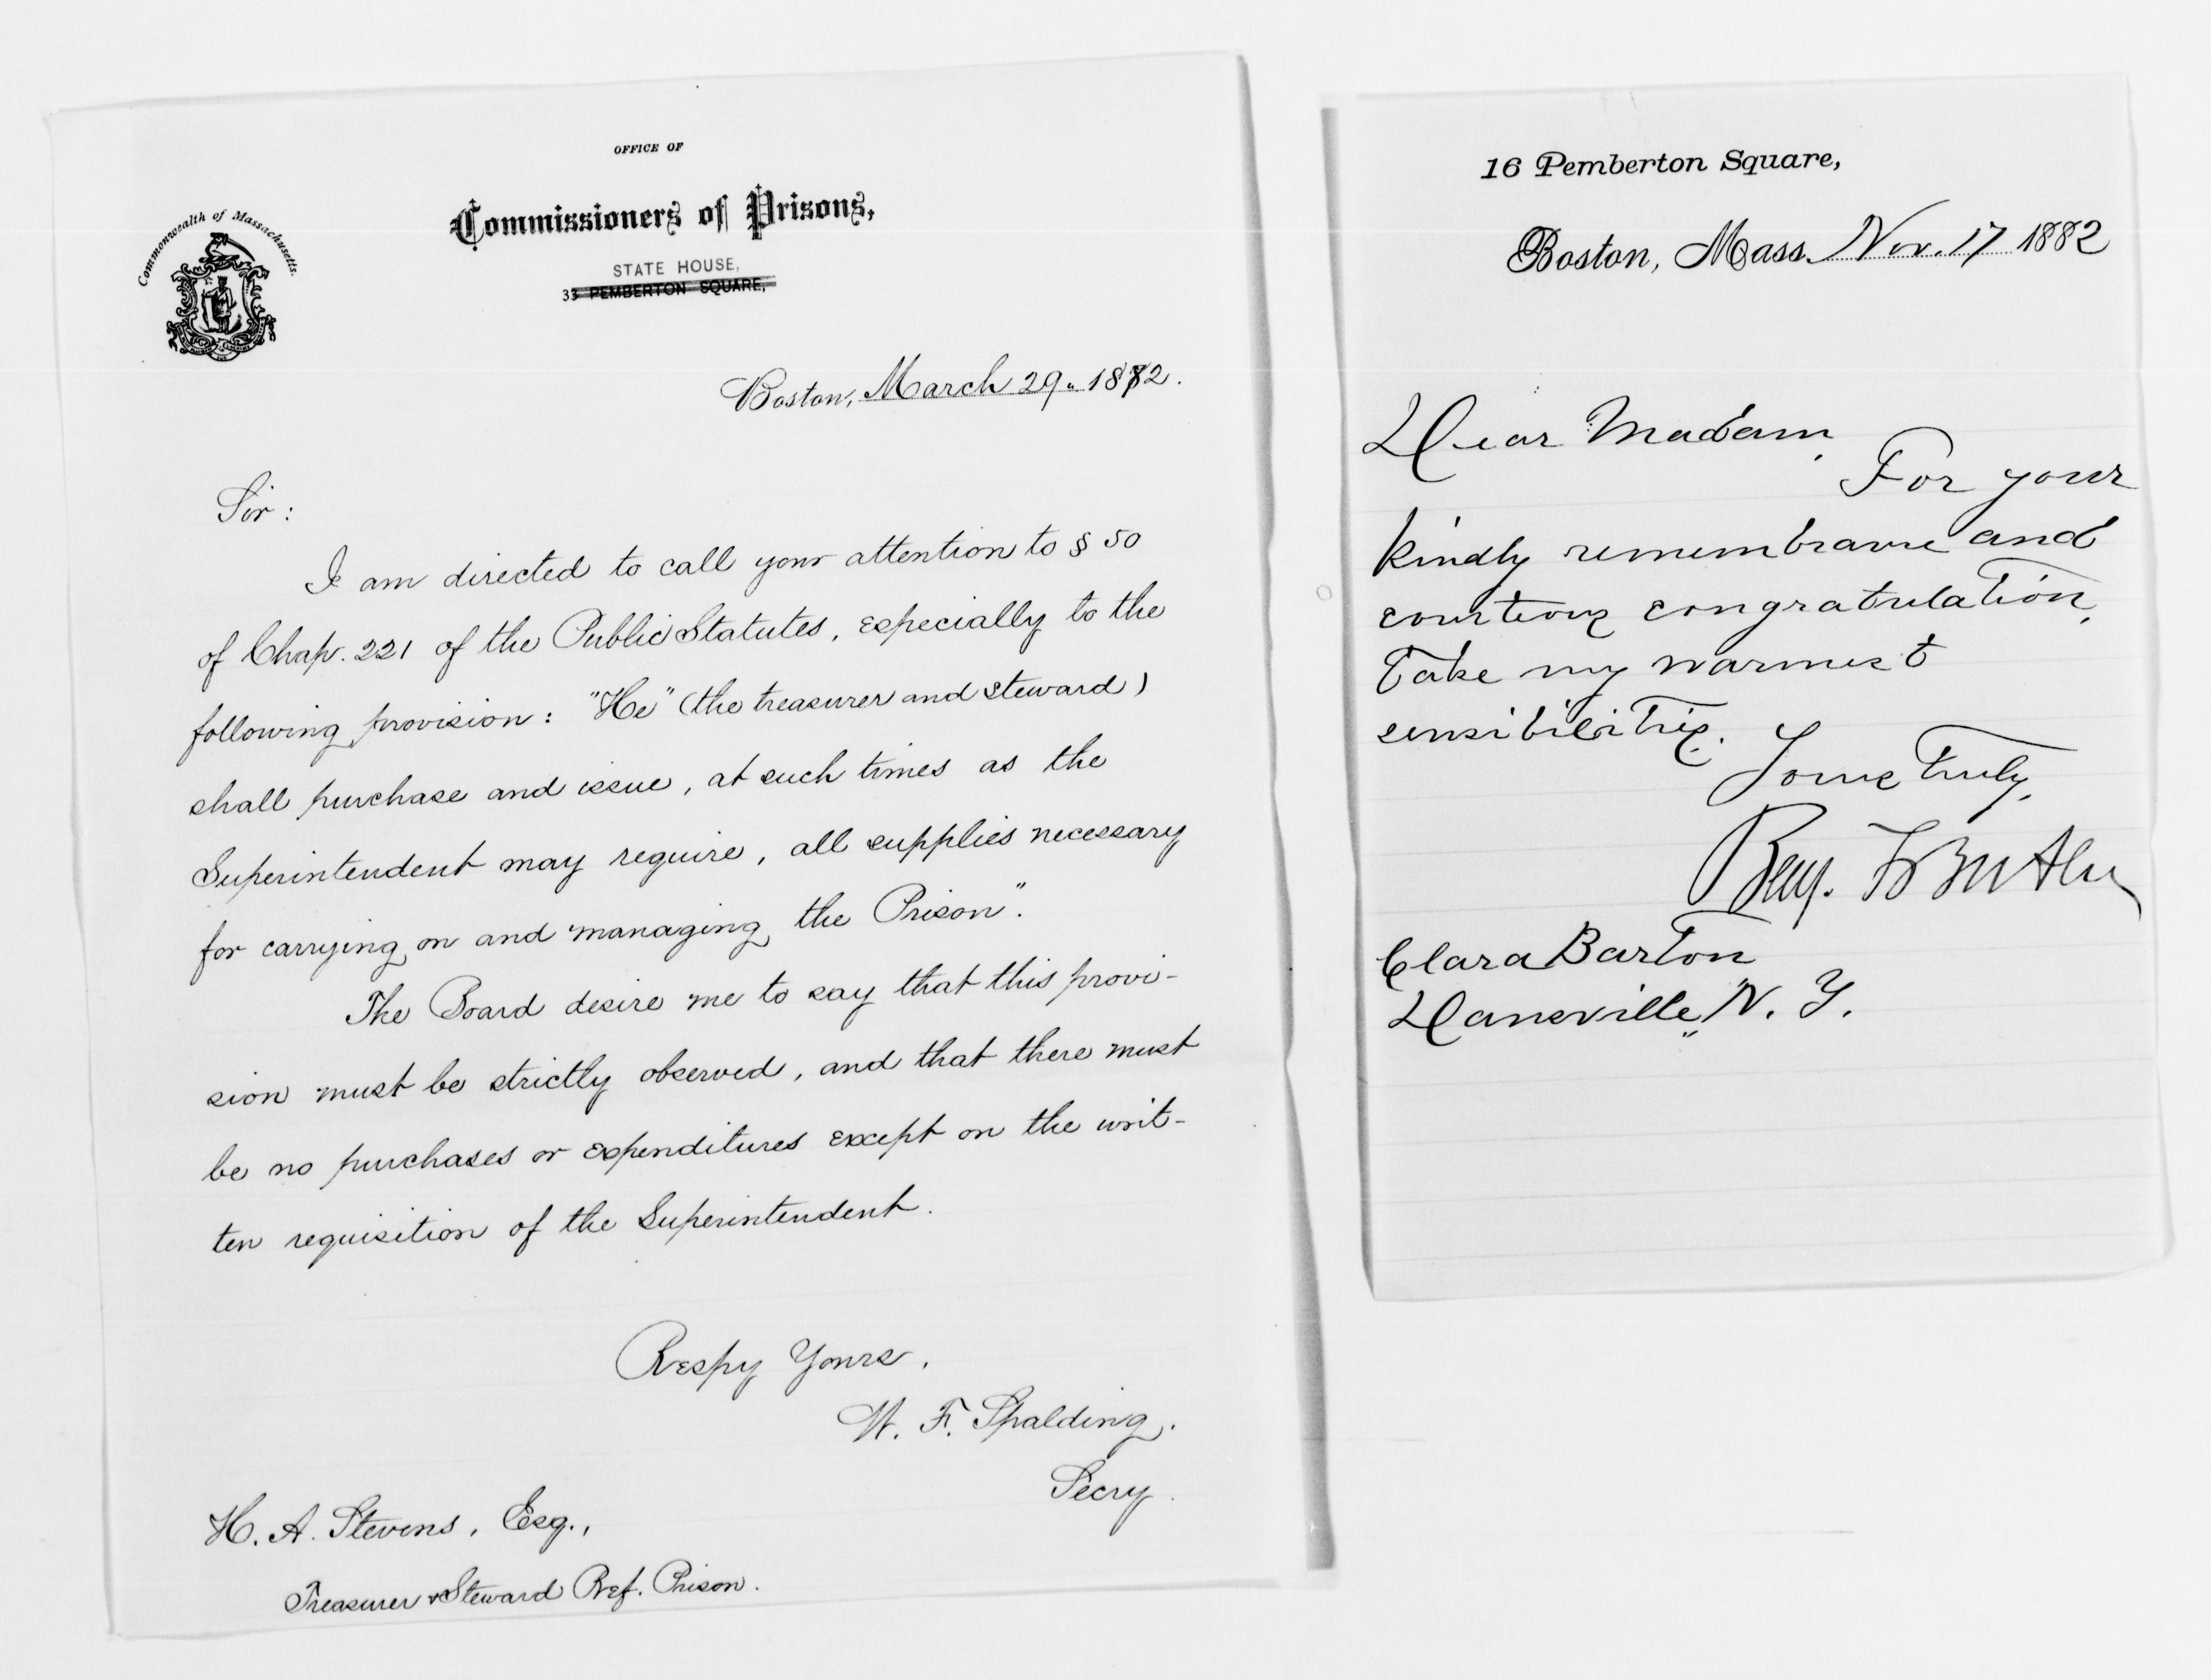 OFFICE OF
Commissioners of Prisons,
Commonwealth of Massachusetts.
STATE HOUSE,
33 PEMBERTON SQUARE,
Boston, March 29. 1882.
Sir:
I am directed to call your attention to § 50
of Chap. 221 of the Public Statutes, especially to the
following provision: "He" (the treasurer and steward)
shall purchase and issue, at such times as the
Superintendent may require, all supplies necessary
for carrying on and managing the Prison".
The Board desire me to say that this provi-
sion must be strictly observed, and that there must
be no purchases or expenditures except on the writ-
ten requisition of the Superintendent.
Respy Yours,
W. F. Spalding.
Secry.
H. A. Stevens, Esq.,
Treasurer & Steward Ref. Prison.
16 Pemberton Square,
Boston, Mass. Nov. 17 1882
Dear Madam,
For your
kindly remembrance and
courteous congratulation,
Take my warmest
sensibilities.
Yours Truly,
Benj. F Butler
Clara Barton
Dansville, N. Y.